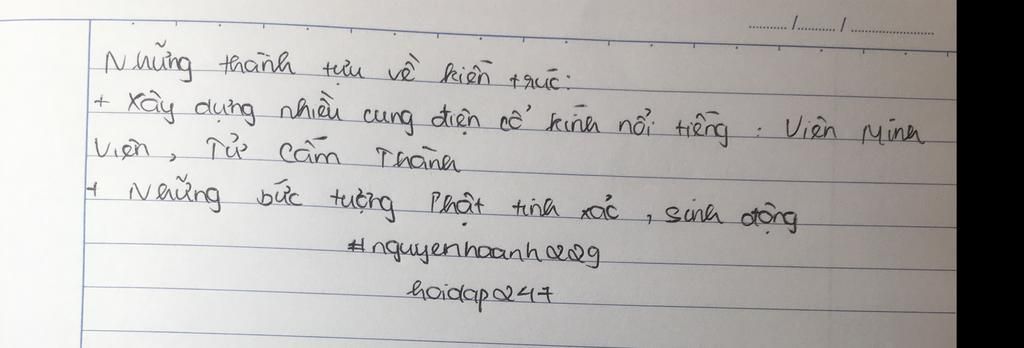 ........../........../....................
Những thành tựu về kiến trúc:
+ Xây dựng nhiều cung điện cổ kính nổi tiếng : Viên Minh
Viện, Tử Cấm Thành
+ Những bức tượng Phật tinh xác, sinh động
#nguyenhoanh2229
hoidap247